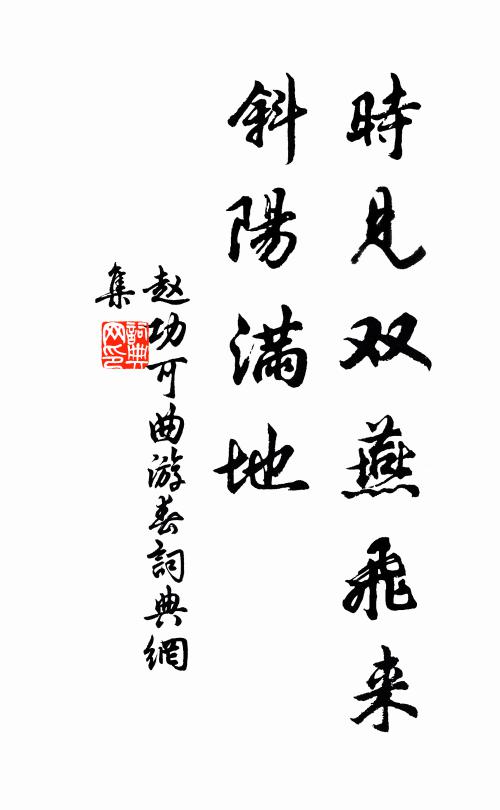 時見双燕飛来
斜陽滿地
赵功可曲游春詞典網
集
詞典
网印